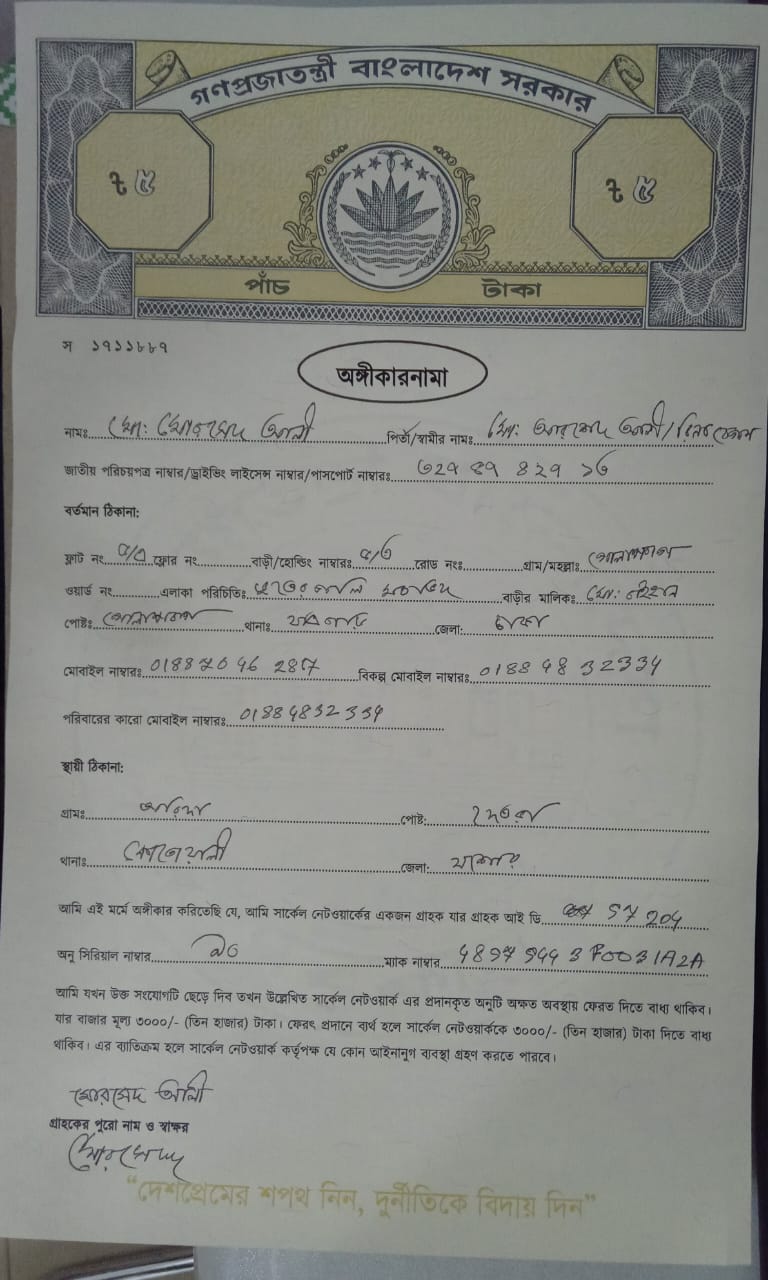 গণপ্রজাতন্ত্রী বাংলাদেশ সরকার
৳ ৫ ৳ ৫
পাঁচ টাকা
স ১৭১১৮৮৭
অঙ্গীকারনামা
নামঃ মোঃ মোরসেদ আলী পিতা/স্বামীর নামঃ মোঃ আরশেদ আলী/
জাতীয় পরিচয়পত্র নাম্বার/ড্রাইভিং লাইসেন্স নাম্বার/পাসপোর্ট নাম্বারঃ
বর্তমান ঠিকানা:
ফ্লাট নং ফ্লোর নং বাড়ী/হোল্ডিং নাম্বারঃ রোড নংঃ গ্রাম/মহল্লাঃ
ওয়ার্ড নং এলাকা পরিচিতিঃ বাড়ীর মালিকঃ মোঃ
পোষ্টঃ থানাঃ জেলা: ঢাকা
মোবাইল নাম্বারঃ বিকল্প মোবাইল নাম্বারঃ 01884832334
পরিবারের কারো মোবাইল নাম্বারঃ 01884832334
স্থায়ী ঠিকানা:
গ্রামঃ পোষ্ট:
থানাঃ কোতোয়ালী জেলা: যশোর
আমি এই মর্মে অঙ্গীকার করিতেছি যে, আমি সার্কেল নেটওয়ার্কের একজন গ্রাহক যার গ্রাহক আই ডি 57204
অনু সিরিয়াল নাম্বার ম্যাক নাম্বার
আমি যখন উক্ত সংযোগটি ছেড়ে দিব তখন উল্লেখিত সার্কেল নেটওয়ার্ক এর প্রদানকৃত অনুটি অক্ষত অবস্থায় ফেরত দিতে বাধ্য থাকিব।
যার বাজার মূল্য ৩০০০/- (তিন হাজার) টাকা। ফেরৎ প্রদানে ব্যর্থ হলে সার্কেল নেটওয়ার্ককে ৩০০০/- (তিন হাজার) টাকা দিতে বাধ্য
থাকিব। এর ব্যতিক্রম হলে সার্কেল নেটওয়ার্ক কর্তৃপক্ষ যে কোন আইনানুগ ব্যবস্থা গ্রহণ করতে পারবে।
মোরসেদ আলী
গ্রাহকের পুরো নাম ও স্বাক্ষর
মোরসেদ
“দেশপ্রেমের শপথ নিন, দুর্নীতিকে বিদায় দিন”